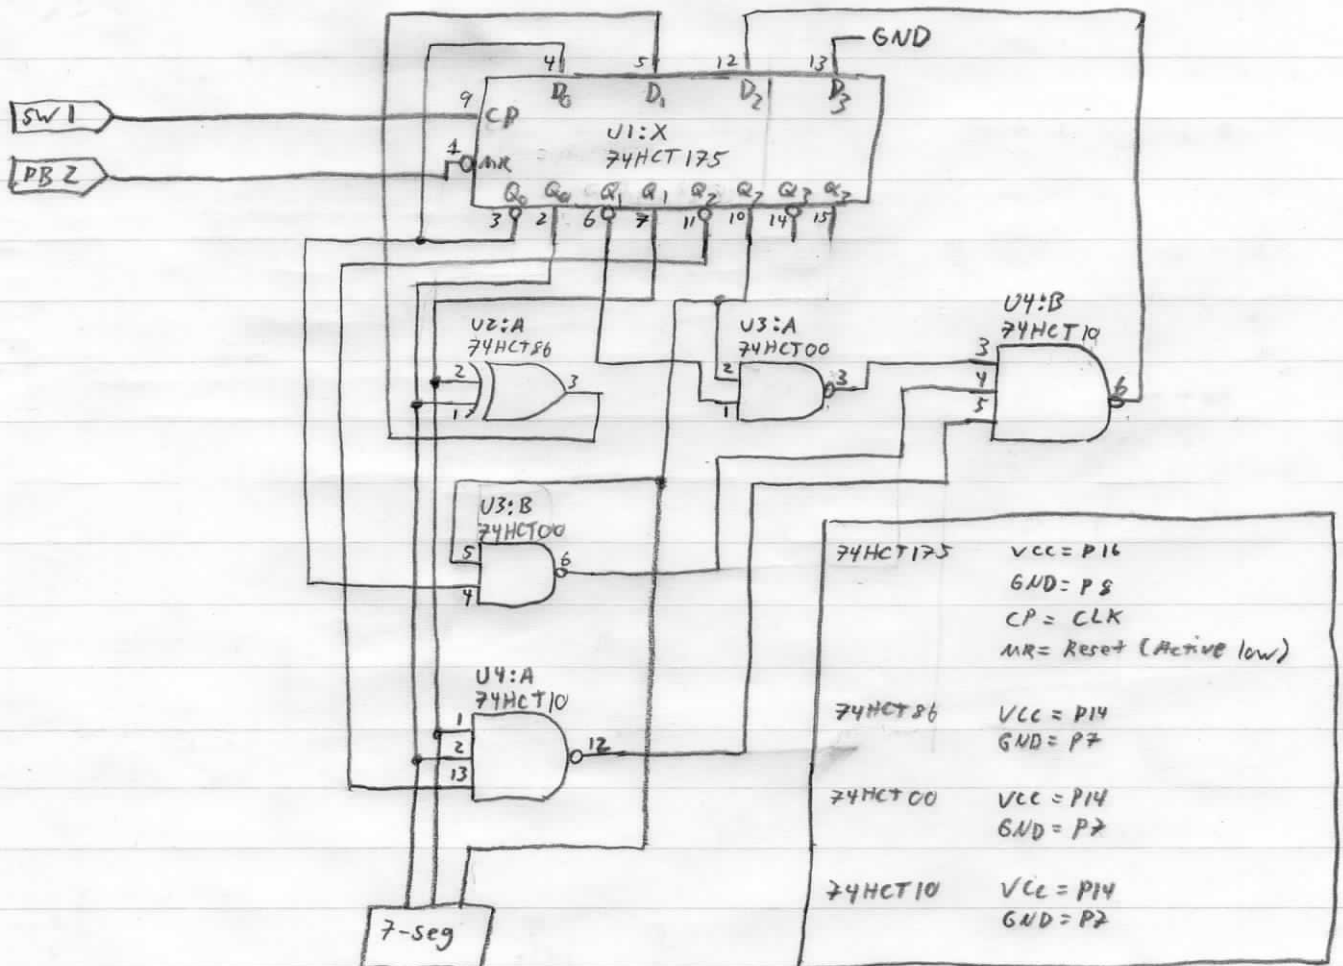 GND
4 5 12 13
D0 D1 D2 D3
SW1
9 CP
U1:X
74HCT175
PB2
1 MR
Q0 Q0 Q1 Q1 Q2 Q2 Q3 Q3
3 2 6 7 11 10 14 15
U2:A
74HCT86
2
1
3
U3:A
74HCT00
2
1
3
U4:B
74HCT10
3
4
5
6
U3:B
74HCT00
5
4
6
U4:A
74HCT10
1
2
13
12
7-seg
74HCT175 VCC = P16
GND = P8
CP = CLK
MR = Reset (Active low)
74HCT86 VCC = P14
GND = P7
74HCT00 VCC = P14
GND = P7
74HCT10 VCC = P14
GND = P7